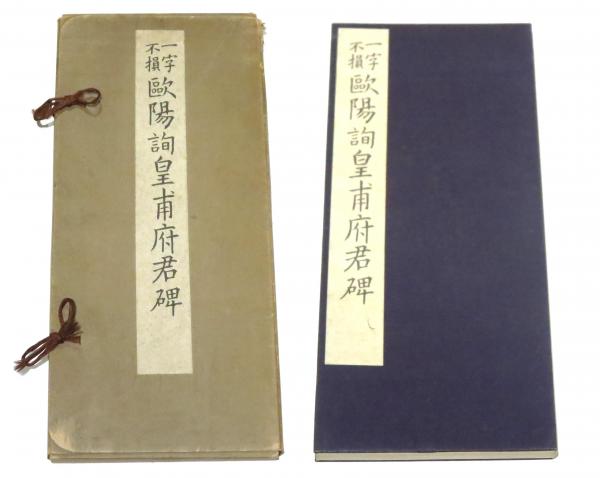 一字不損 歐陽詢皇甫府君碑
一字不損 歐陽詢皇甫府君碑